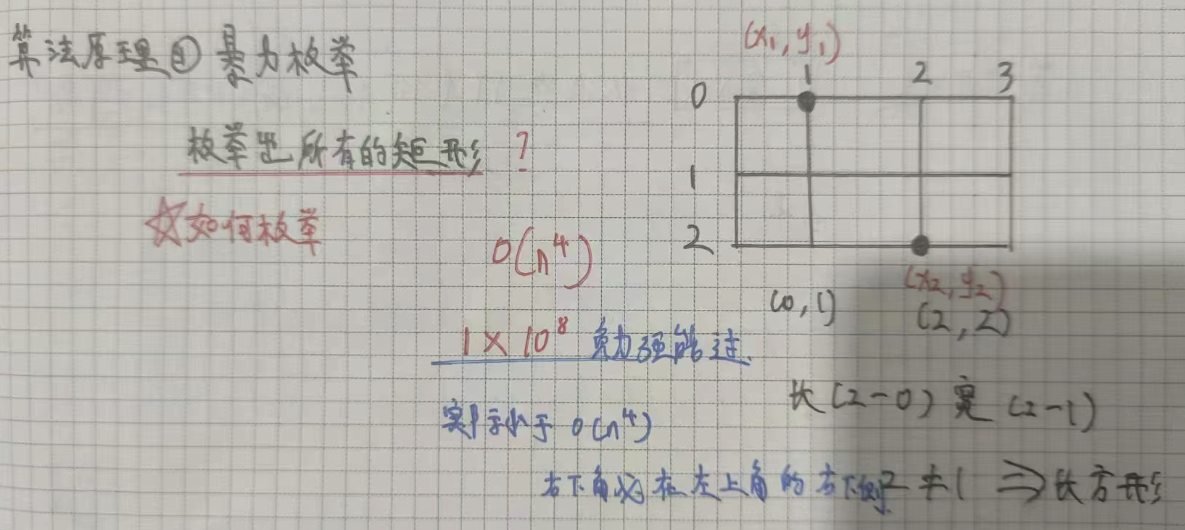 算法原理① 暴力枚举
枚举出所有的矩形?
☆如何枚举
O(n⁴)
1×10⁸ 勉强能过.
实际小于 O(n⁴)
右下角必在左上角的右下侧
(x₁,y₁)
1 2 3
0
1
2
(x₂,y₂)
(0,1) (2,2)
长(2-0) 宽(2-1)
2≠1 ⇒长方形